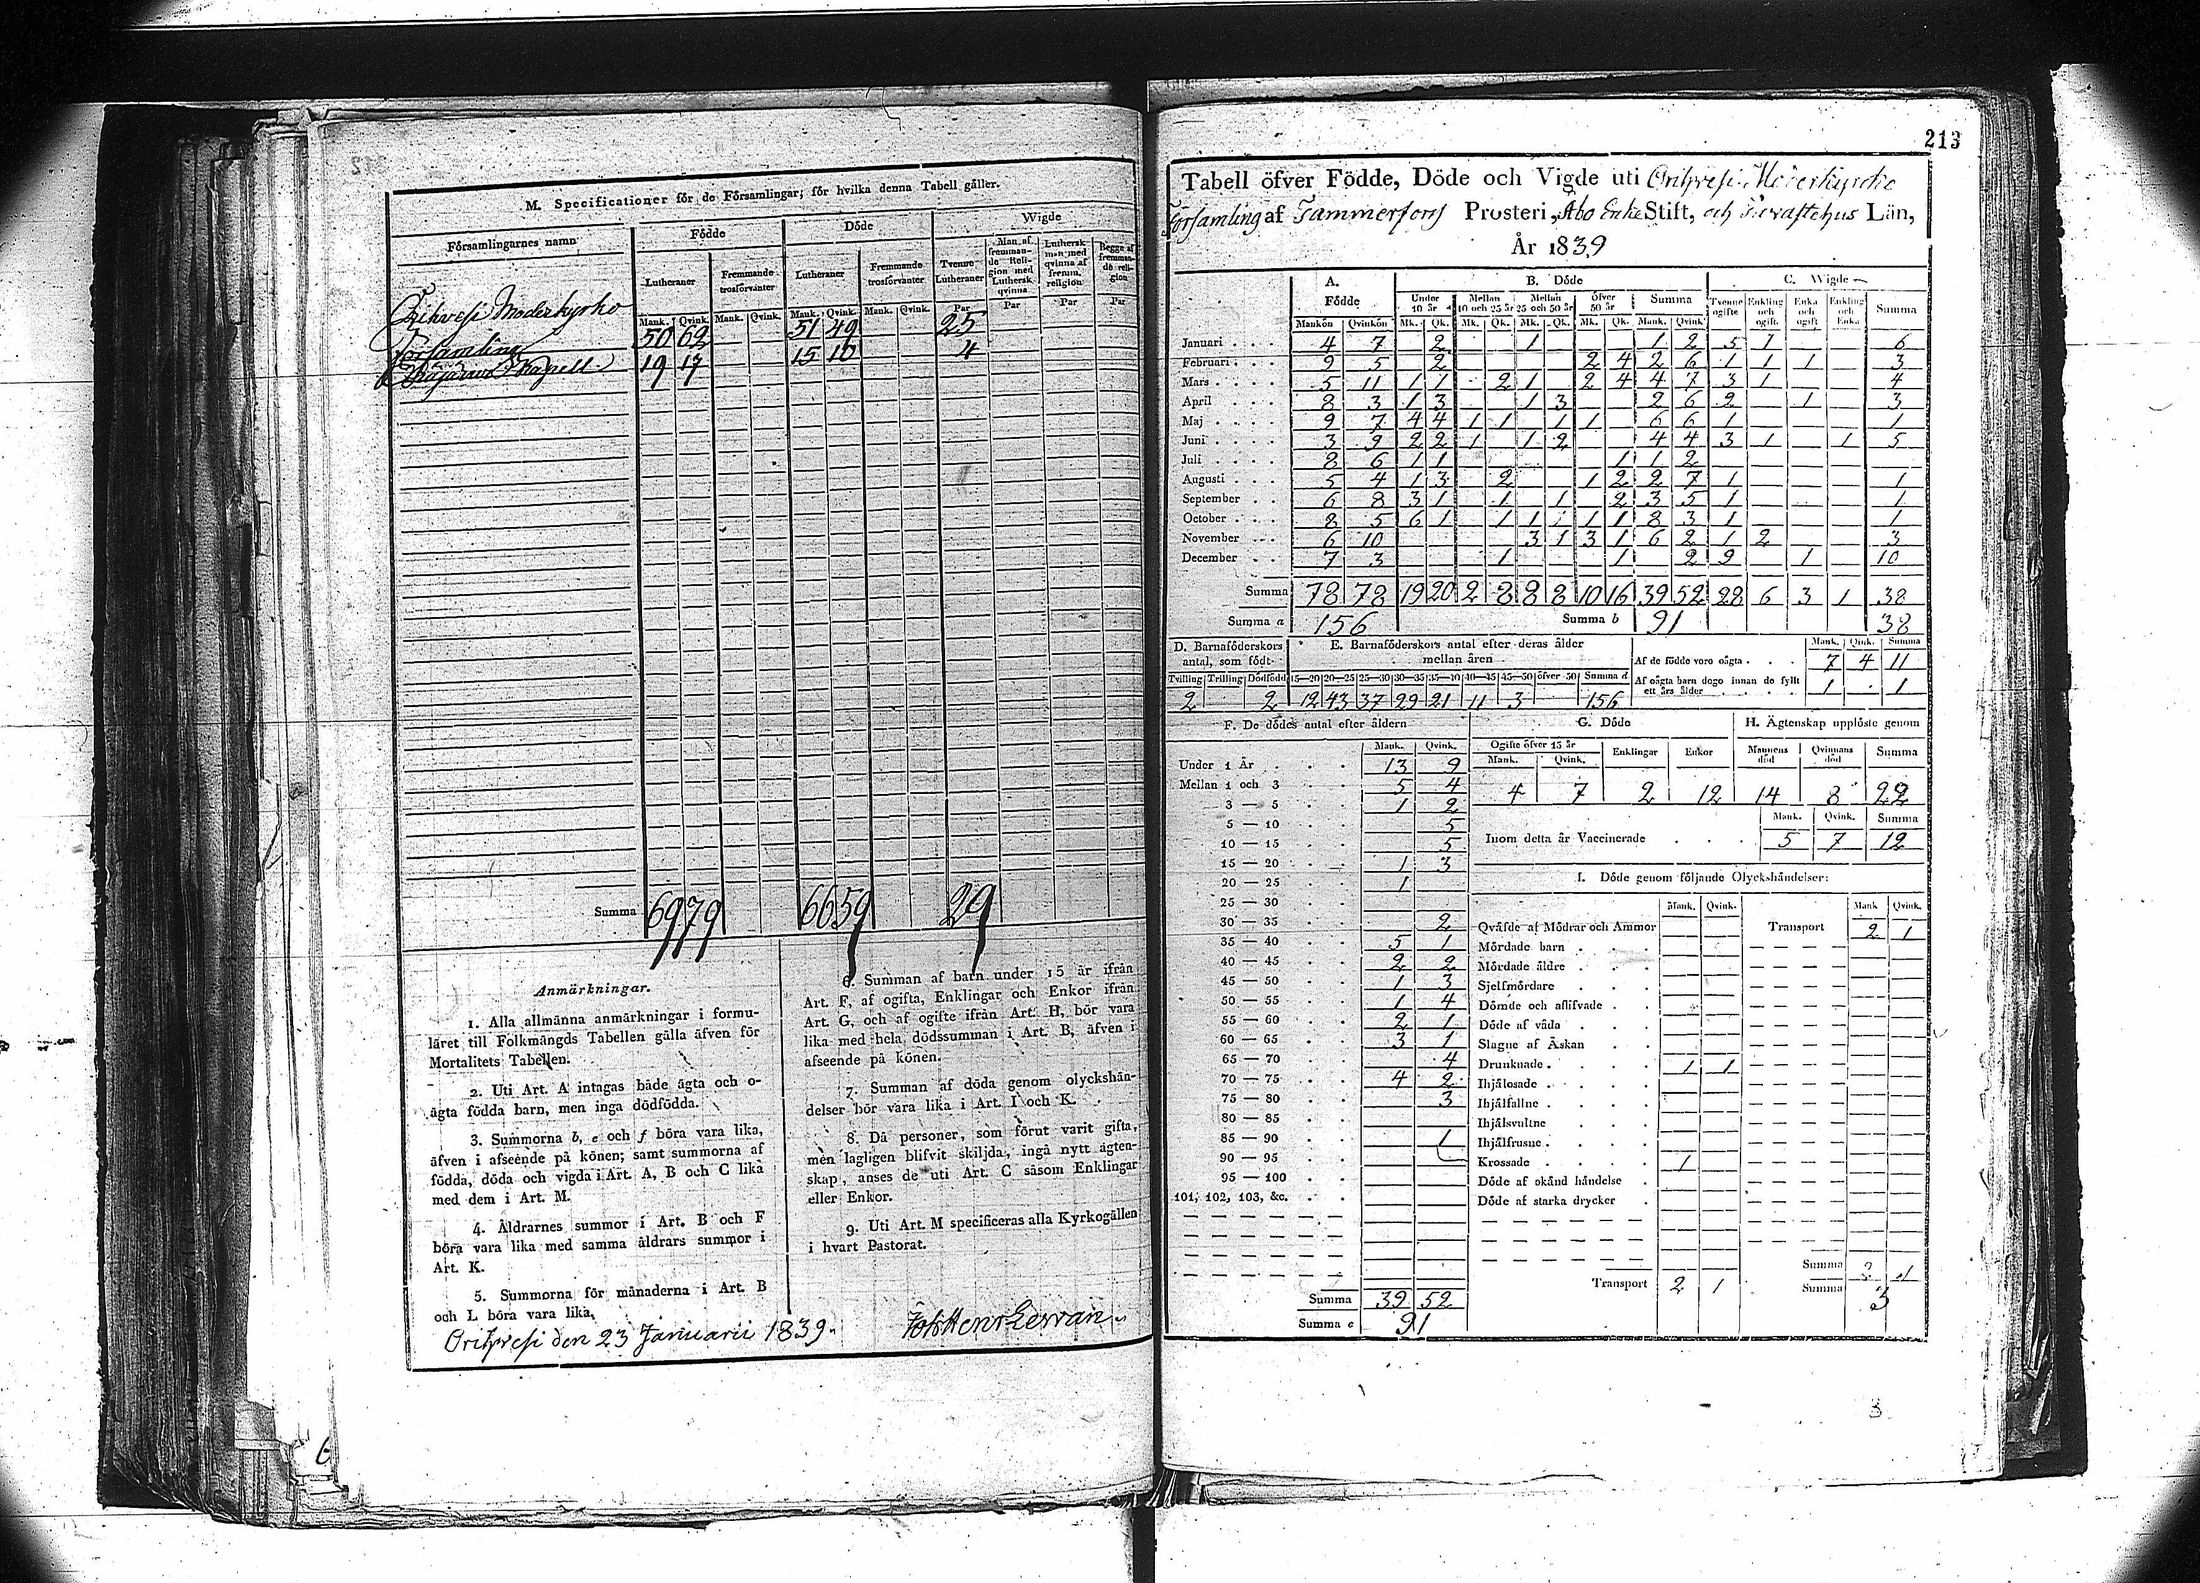 M. Specificationer för de Församlingar, för hvilka denna Tabell gäller.
Församlingarnes namn
Födde
Döde
Wigde
Lutheraner
Fremmande trosförvanter
Lutheraner
Fremmande trosförvanter
Tvenne Lutheraner
Man af fremmande Religion med Luthersk qvinna
Luthersk man med qvinna af fremm. religion
Begge af fremmande religion
Mank. Qvink. Mank. Qvink. Mank. Qvink. Mank. Qvink. Par Par Par Par
Orihvesi Moderkyrko
Församling 50 62 51 49 25
Kapell 19 17 15 10 4
Summa 69 79 66 59 29
Anmärkningar.
1. Alla allmänna anmärkningar i formu-
läret till Folkmängds Tabellen gälla äfven för
Mortalitets Tabellen.
2. Uti Art. A intagas både ägta och o-
ägta födda barn, men inga dödfödda.
3. Summorna b, e och f böra vara lika,
äfven i afseende på könen; samt summorna af
födda, döda och vigda i Art. A, B och C lika
med dem i Art. M.
4. Åldrarnes summor i Art. B och F
böra vara lika med samma åldrars summor i
Art. K.
5. Summorna för månaderna i Art. B
och L böra vara lika.
6. Summan af barn under 15 år ifrån
Art. F, af ogifta, Enklingar och Enkor ifrån
Art. G, och af ogifte ifrån Art. H, bör vara
lika med hela dödssumman i Art. B, äfven i
afseende på könen.
7. Summan af döda genom olyckshän-
delser bör vara lika i Art. I och K.
8. Då personer, som förut varit gifta,
men lagligen blifvit skiljda, ingå nytt ägten-
skap, anses de uti Art. C såsom Enklingar
eller Enkor.
9. Uti Art. M specificeras alla Kyrkogällen
i hvart Pastorat.
Orihvesi den 23 Januarii 1839.
213
Tabell öfver Födde, Döde och Vigde uti Orihvesi Moderkyrko
Församling af Tammerfors Prosteri, Åbo Erke Stift, och Tavastehus Län,
År 1839
A. Födde
B. Döde
C. Wigde
Under 10 år
Mellan 10 och 25 år
Mellan 25 och 50 år
Öfver 50 år
Summa
Tvenne ogifte
Enkling och ogift.
Enka och ogift
Enkling och Enka
Summa
Mankön Qvinkön Mk. Qk. Mk. Qk. Mk. Qk. Mk. Qk. Mank. Qvink.
Januari 4 7 2 1 1 2 5 1 6
Februari 9 5 2 2 4 2 6 1 1 1 3
Mars 5 11 1 1 2 1 2 4 4 7 3 1 4
April 8 3 1 3 1 3 2 6 2 1 3
Maj 9 7 4 4 1 1 1 1 6 6 1 1
Juni 3 9 2 2 1 1 2 4 4 3 1 1 5
Juli 8 6 1 1 1 1 2
Augusti 5 4 1 3 2 1 2 2 7 1 1
September 6 8 3 1 1 1 2 3 5 1 1
October 8 5 6 1 1 1 1 1 8 3 1 1
November 6 10 3 1 3 1 6 2 1 2 3
December 7 3 1 1 2 9 1 10
Summa 78 78 19 20 2 8 8 8 10 16 39 52 28 6 3 1 38
Summa a 156 Summa b 91 38
D. Barnaföderskors antal, som födt
Tvilling Trilling Dödfödd
2 2
E. Barnaföderskors antal efter deras ålder mellan åren
15—20 20—25 25—30 30—35 35—40 40—45 45—50 öfver 50 Summa d
12 43 37 29 21 11 3 156
Mank. Qink. Summa
Af de födde voro oägta 7 4 11
Af oägta barn dogo innan de fyllt ett års ålder 1 1
F. De dödes antal efter åldern
Mank. Qvink.
Under 1 År 13 9
Mellan 1 och 3 5 4
3 — 5 1 2
5 — 10 5
10 — 15 5
15 — 20 1 3
20 — 25 1
25 — 30
30 — 35 2
35 — 40 5 1
40 — 45 2 2
45 — 50 1 3
50 — 55 1 4
55 — 60 2 1
60 — 65 3 1
65 — 70 4
70 — 75 4 2
75 — 80 3
80 — 85
85 — 90 1
90 — 95
95 — 100
101, 102, 103, &c.
Summa 39 52
Summa e 91
G. Döde
Ogifte öfver 15 år
Mank. Qvink. Enklingar Enkor
4 7 2 12
H. Ägtenskap upplöste genom
Mannens död Qvinnans död Summa
14 8 22
Mank. Qvink. Summa
Inom detta år Vaccinerade 5 7 12
I. Döde genom följande Olyckshändelser:
Mank. Qvink. Mank Qvink.
Qväfde af Mödrar och Ammor Transport 2 1
Mördade barn
Mördade äldre
Sjelfmördare
Dömde och aflifvade
Döde af våda
Slagne af Åskan
Drunknade 1 1
Ihjälosade
Ihjälfallne
Ihjälsvultne
Ihjälfrusne
Krossade 1
Döde af okänd händelse
Döde af starka drycker
Summa 2 1
Transport 2 1 Summa 3